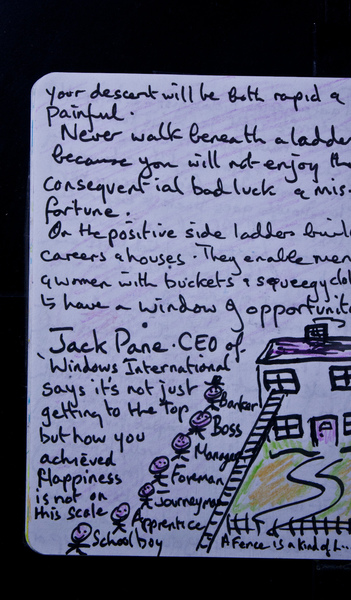 your descent will be both rapid &
painful.
Never walk beneath a ladder
because you will not enjoy the
consequential bad luck & mis-
fortune.
On the positive side ladders build
careers & houses. They enable men
& women with buckets & squeegy clot
to have a window of opportunity
Jack Pane. CEO of
Windows International
says it's not just
getting to the top
but how you
achieved
Happiness
is not on
this scale
Banker
Boss
Manager
Foreman
Journeyman
Apprentice
Schoolboy
A Fence is a kind of L...